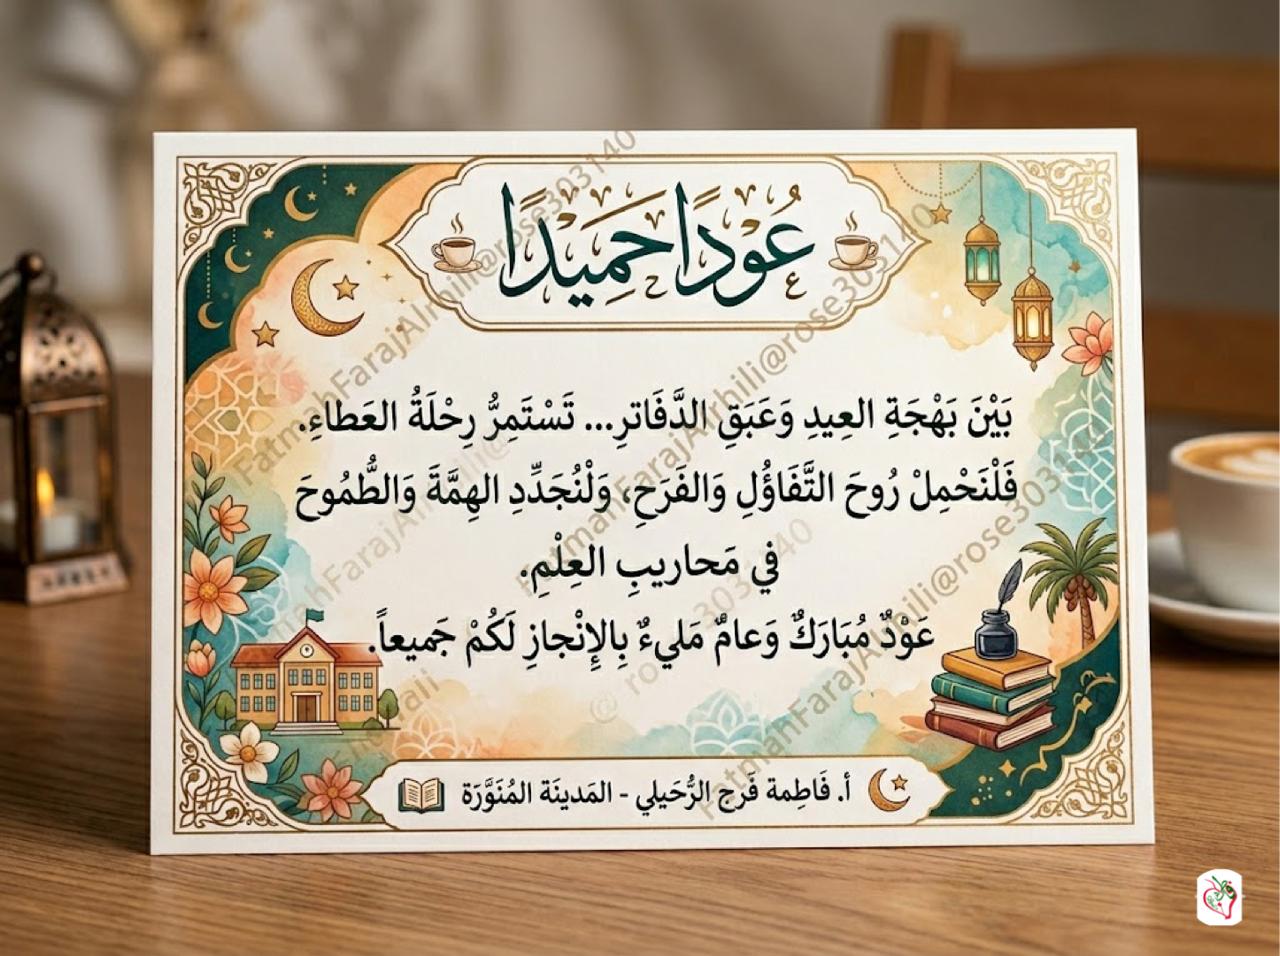 عُوْدًا حَمِيْدًا
بَيْنَ بَهْجَةِ العِيدِ وَعَبَقِ الدَّفَاتِرِ... تَسْتَمِرُّ رِحْلَةُ العَطاءِ.
فَلْنَحْمِلْ رُوحَ التَّفَاؤُلِ وَالفَرَحِ، وَلْنُجَدِّدِ الهِمَّةَ وَالطُّمُوحَ
في مَحاريبِ العِلْمِ.
عَوْدٌ مُبَارَكٌ وَعامٌ مَليءٌ بِالإِنْجازِ لَكُمْ جَميعاً.
أ. فَاطِمة فَرج الرُّحَيلي - المَدينَة المُنَوَّرَة
FatmahFarajAlrhili@rose303140
FatmahFarajAlrhili@rose303140
FatmahFarajAlrhili@rose303140